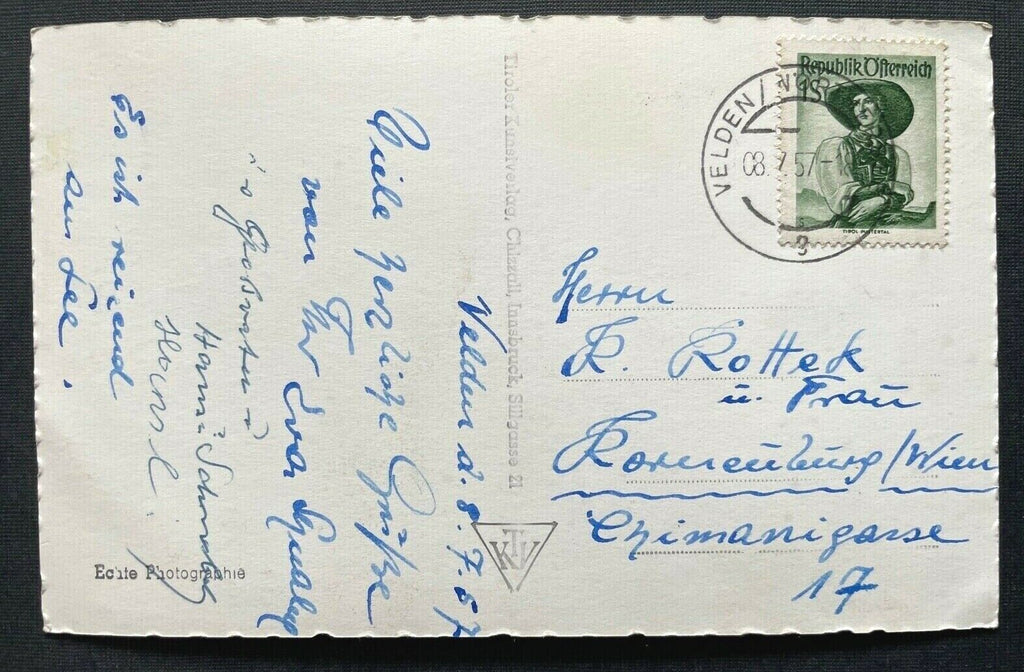 Velden d. 8. 7. 57
Viele herzliche Grüße
von
Ihr
Großvater u
Hansl.
Es ist reizend
am See.
Echte Photographie
Tiroler Kunstverlag, Chizzali, Innsbruck, Sillgasse 21
KTV
Republik Österreich
TIROL-PUSTERTAL
VELDEN/
08. 7. 57-
g
Herrn
R. Rottek
u. Frau
Korneuburg/Wien
Chimanigasse
17